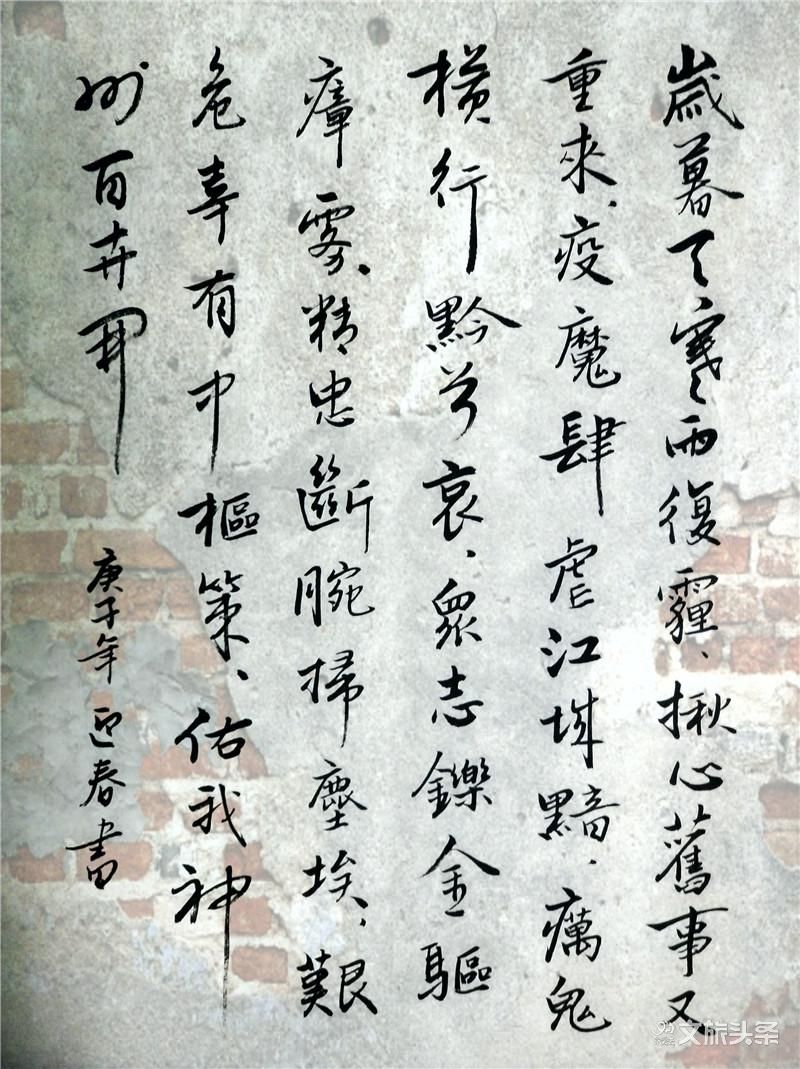 歲暮天寒雨復霾、揪心舊事又
重來、疫魔肆虐江城黯、癘鬼
橫行黔兮哀、眾志鑠金驅
瘴霧、精忠斷腕掃塵埃、艱
危幸有中樞策、佑我神
州百卉開
庚子年迎春書
文旅头条